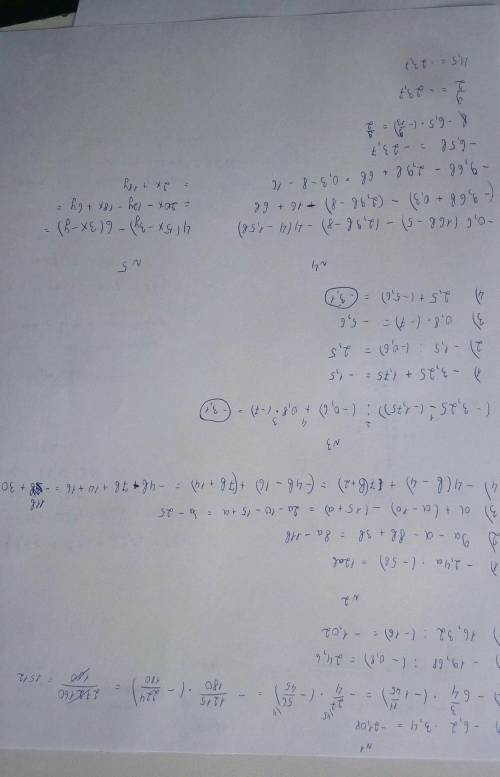 n1
1) -6,2 · 3,4 = -21,08
2) -6 3/4 · (-1 11/45) = - 27/4 · (- 56/45) = - 1215/180 · (- 224/180) = 272160/180 = 1512
) -19,68 : (-0,8) = 24,6
) 16,32 : (-16) = -1,02
n2
1) -2,4a · (-5b) = 12ab
2) 9a - a - 8b + 3b = 8a - 11b
3) a + (a - 10) - (15 + a) = 2a - 10 - 15 + a = 3a - 25
4) -4(b - 4) + (7(b+2) = (-4b - 16) + (7b + 14) = -4b + 7b + 14 + 16 = 11b + 30
n3
(-3,25 - (-1,75)) : (-0,6) + 0,8 · (-7) = -3,1
1) -3,25 + 1,75 = -1,5
2) -1,5 : (-0,6) = 2,5
3) 0,8 · (-7) = -5,6
4) 2,5 + (-5,6) = -3,1
n4
-0,6 (16b - 5) - (2,9b - 8) - 4(4 - 1,5b)
(-9,6b + 0,3) - (2,9b - 8) + 16 + 6b
-9,6b - 2,9b + 6b + 0,3 - 8 - 16
-6,5b = -23,7
= -23,7
4,5 = -23,7
n5
4(5x - 3y) - 6(3x - y) =
= 20x - 12y - 18x + 6y =
= 2x + 18y